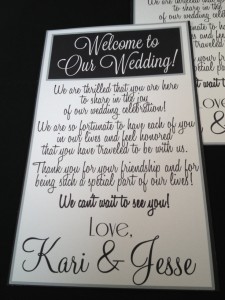 Welcome to
Our Wedding!
We are thrilled that you are here
to share in the joy
of our wedding celebration!
We are so fortunate to have each of you
in our lives and feel honored
that you have traveled to be with us.
Thank you for your friendship and for
being such a special part of our lives!
We can't wait to see you!
Love,
Kari & Jesse